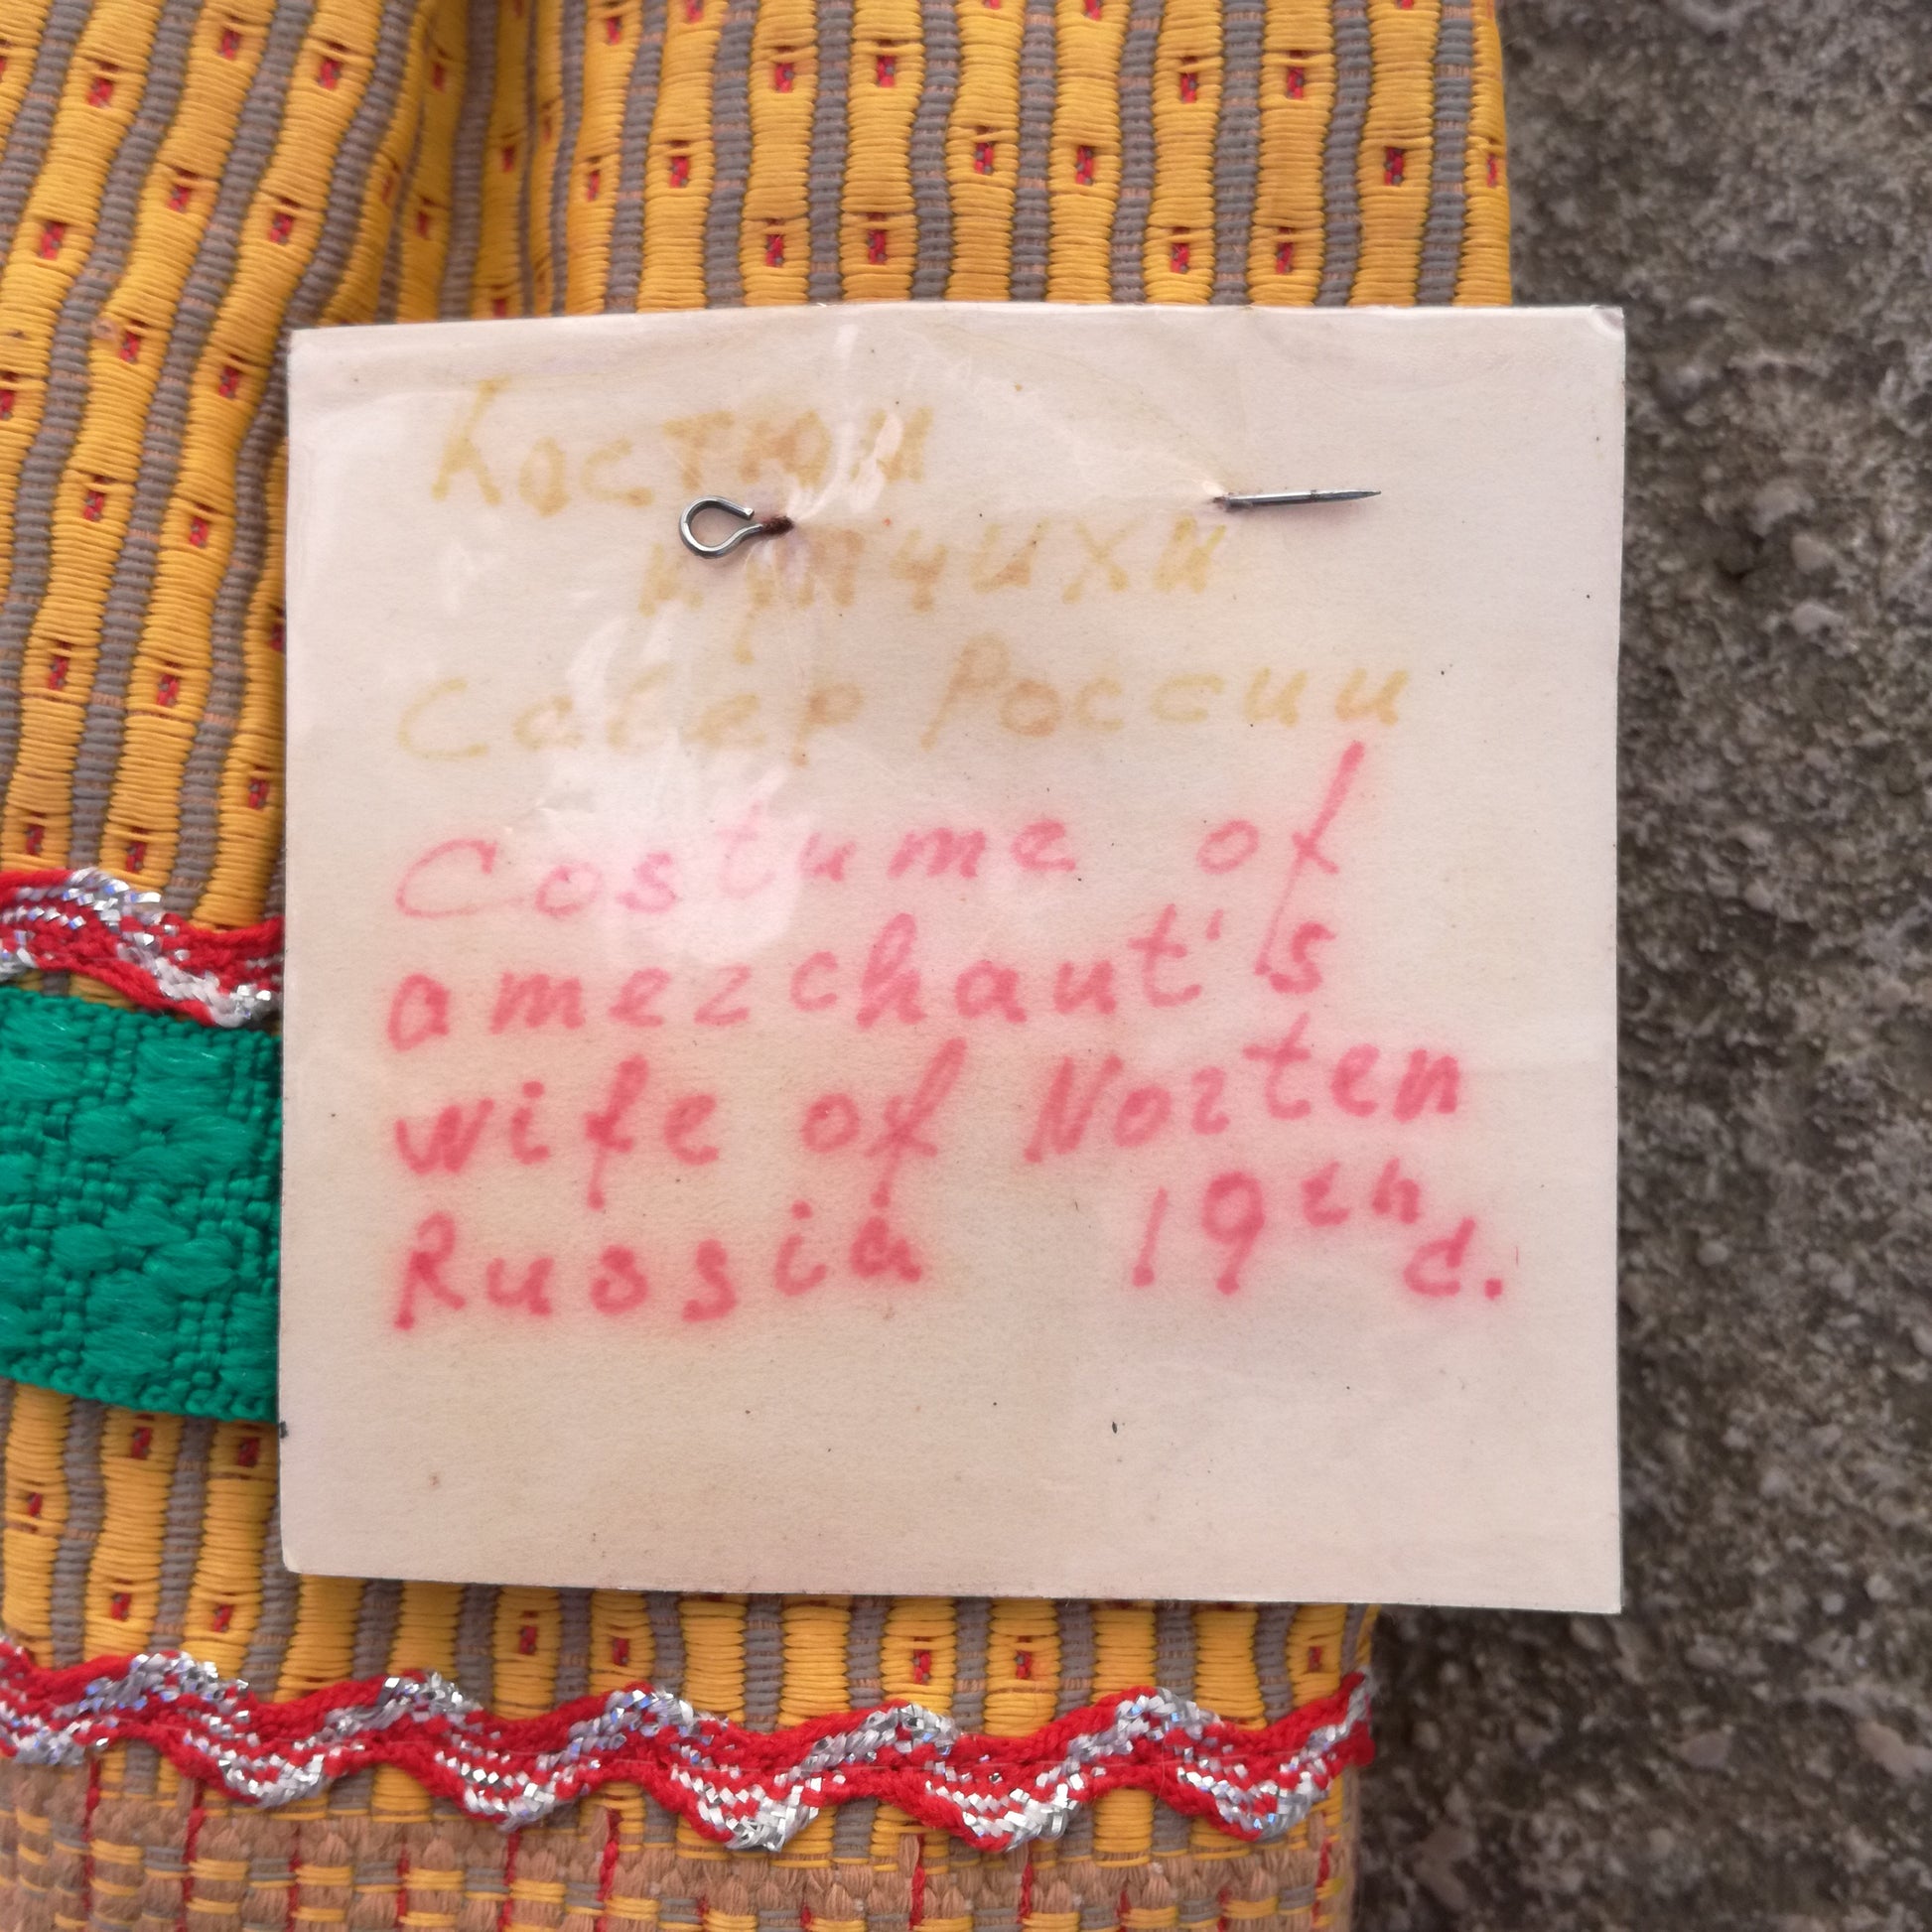 Костюм
купчихи
Север России
Costume of
a merchant's
wife of Norten
Russia 19th c.